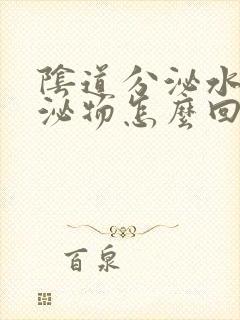 陰道分泌水
泌物怎麼回
百泉